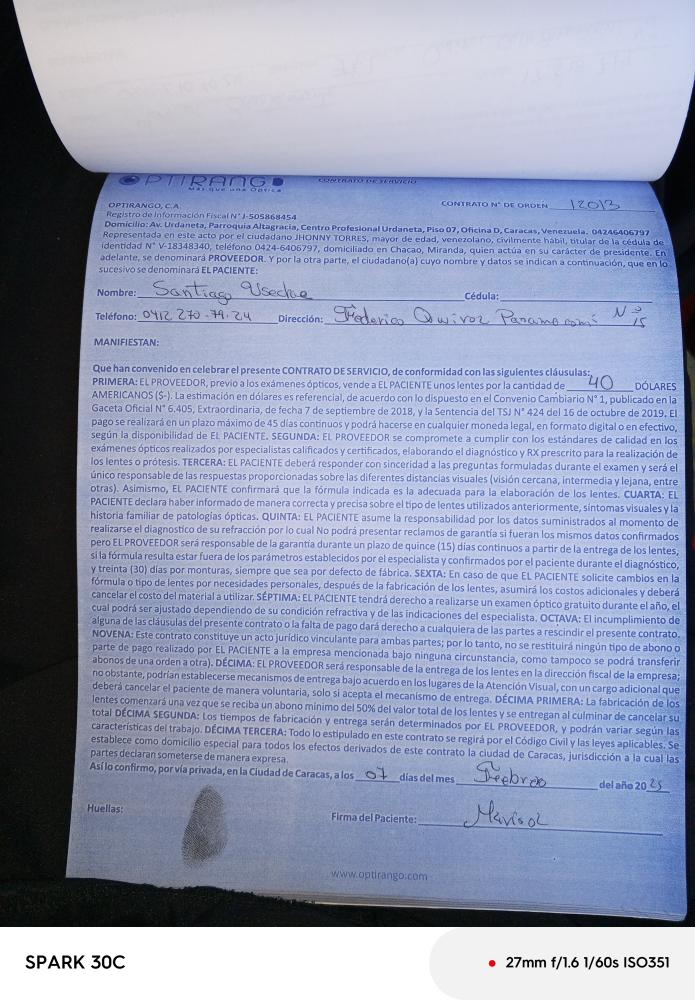 OPTIRANGO
Más que una Óptica
CONTRATO DE SERVICIO
OPTIRANGO, C.A.
CONTRATO N° DE ORDEN 12013
Registro de Información Fiscal N° J-505868454
Domicilio: Av. Urdaneta, Parroquia Altagracia, Centro Profesional Urdaneta, Piso 07, Oficina D, Caracas, Venezuela. 04246406797
Representada en este acto por el ciudadano JHONNY TORRES, mayor de edad, venezolano, civilmente hábil, titular de la cédula de
identidad N° V-18348340, teléfono 0424-6406797, domiciliado en Chacao, Miranda, quien actúa en su carácter de presidente. En
adelante, se denominará PROVEEDOR. Y por la otra parte, el ciudadano(a) cuyo nombre y datos se indican a continuación, que en lo
sucesivo se denominará EL PACIENTE:
Nombre: Santiago Cédula:
Teléfono: 0412 270.79.24 Dirección: Federico Quiroz N° 15
MANIFIESTAN:
Que han convenido en celebrar el presente CONTRATO DE SERVICIO, de conformidad con las siguientes cláusulas:
PRIMERA: EL PROVEEDOR, previo a los exámenes ópticos, vende a EL PACIENTE unos lentes por la cantidad de 40 DÓLARES
AMERICANOS ($-). La estimación en dólares es referencial, de acuerdo con lo dispuesto en el Convenio Cambiario N° 1, publicado en la
Gaceta Oficial N° 6.405, Extraordinaria, de fecha 7 de septiembre de 2018, y la Sentencia del TSJ N° 424 del 16 de octubre de 2019. El
pago se realizará en un plazo máximo de 45 días continuos y podrá hacerse en cualquier moneda legal, en formato digital o en efectivo,
según la disponibilidad de EL PACIENTE. SEGUNDA: EL PROVEEDOR se compromete a cumplir con los estándares de calidad en los
exámenes ópticos realizados por especialistas calificados y certificados, elaborando el diagnóstico y RX prescrito para la realización de
los lentes o prótesis. TERCERA: EL PACIENTE deberá responder con sinceridad a las preguntas formuladas durante el examen y será el
único responsable de las respuestas proporcionadas sobre las diferentes distancias visuales (visión cercana, intermedia y lejana, entre
otras). Asimismo, EL PACIENTE confirmará que la fórmula indicada es la adecuada para la elaboración de los lentes. CUARTA: EL
PACIENTE declara haber informado de manera correcta y precisa sobre el tipo de lentes utilizados anteriormente, síntomas visuales y la
historia familiar de patologías ópticas. QUINTA: EL PACIENTE asume la responsabilidad por los datos suministrados al momento de
realizarse el diagnostico de su refracción por lo cual No podrá presentar reclamos de garantía si fueran los mismos datos confirmados
pero EL PROVEEDOR será responsable de la garantía durante un plazo de quince (15) días continuos a partir de la entrega de los lentes,
si la fórmula resulta estar fuera de los parámetros establecidos por el especialista y confirmados por el paciente durante el diagnóstico,
y treinta (30) días por monturas, siempre que sea por defecto de fábrica. SEXTA: En caso de que EL PACIENTE solicite cambios en la
fórmula o tipo de lentes por necesidades personales, después de la fabricación de los lentes, asumirá los costos adicionales y deberá
cancelar el costo del material a utilizar. SÉPTIMA: EL PACIENTE tendrá derecho a realizarse un examen óptico gratuito durante el año, el
cual podrá ser ajustado dependiendo de su condición refractiva y de las indicaciones del especialista. OCTAVA: El incumplimiento de
alguna de las cláusulas del presente contrato o la falta de pago dará derecho a cualquiera de las partes a rescindir el presente contrato.
NOVENA: Este contrato constituye un acto jurídico vinculante para ambas partes; por lo tanto, no se restituirá ningún tipo de abono o
parte de pago realizado por EL PACIENTE a la empresa mencionada bajo ninguna circunstancia, como tampoco se podrá transferir
abonos de una orden a otra). DÉCIMA: EL PROVEEDOR será responsable de la entrega de los lentes en la dirección fiscal de la empresa;
no obstante, podrían establecerse mecanismos de entrega bajo acuerdo en los lugares de la Atención Visual, con un cargo adicional que
deberá cancelar el paciente de manera voluntaria, solo si acepta el mecanismo de entrega. DÉCIMA PRIMERA: La fabricación de los
lentes comenzará una vez que se reciba un abono mínimo del 50% del valor total de los lentes y se entregan al culminar de cancelar su
total DÉCIMA SEGUNDA: Los tiempos de fabricación y entrega serán determinados por EL PROVEEDOR, y podrán variar según las
características del trabajo. DÉCIMA TERCERA: Todo lo estipulado en este contrato se regirá por el Código Civil y las leyes aplicables. Se
establece como domicilio especial para todos los efectos derivados de este contrato la ciudad de Caracas, jurisdicción a la cual las
partes declaran someterse de manera expresa.
Así lo confirmo, por vía privada, en la Ciudad de Caracas, a los 07 días del mes Febrero del año 2025
Huellas:
Firma del Paciente: Marisol
www.optirango.com
SPARK 30C
27mm f/1.6 1/60s ISO351